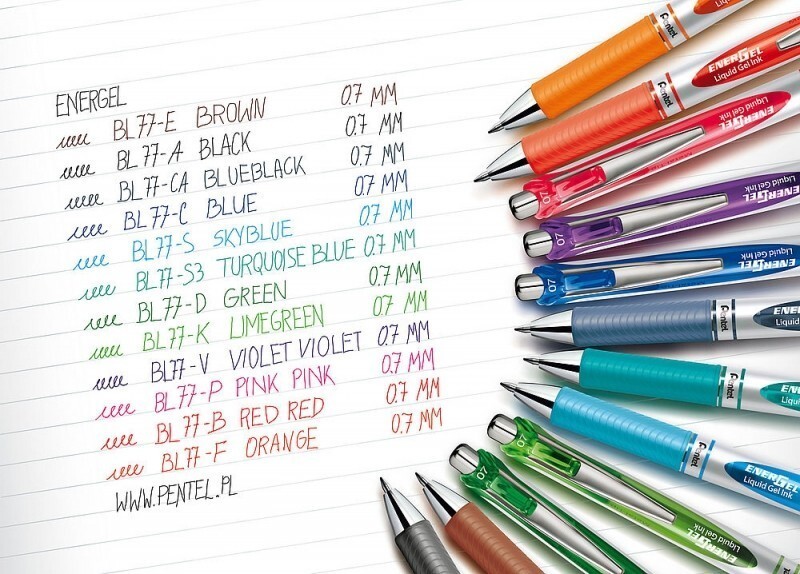 ENERGEL
BL77-E BROWN 0.7 MM
BL77-A BLACK 0.7 MM
BL77-CA BLUEBLACK 0.7 MM
BL77-C BLUE 0.7 MM
BL77-S SKYBLUE 0.7 MM
BL77-S3 TURQUOISE BLUE 0.7 MM
BL77-D GREEN 0.7 MM
BL77-K LIMEGREEN 0.7 MM
BL77-V VIOLET VIOLET 0.7 MM
BL77-P PINK PINK 0.7 MM
BL77-B RED RED 0.7 MM
BL77-F ORANGE 0.7 MM
WWW.PENTEL.PL
Pentel
Pentel
ENERGEL
Liquid Gel Ink
07
ENERGEL
Liquid Gel Ink
07
ENERGEL
Liquid Gel Ink
07
ENERGEL
Liquid Gel Ink
Pentel
Liquid
Pentel
Pentel
ENERGEL
Liquid Gel Ink
07
ENERGEL
Liquid Gel Ink
07